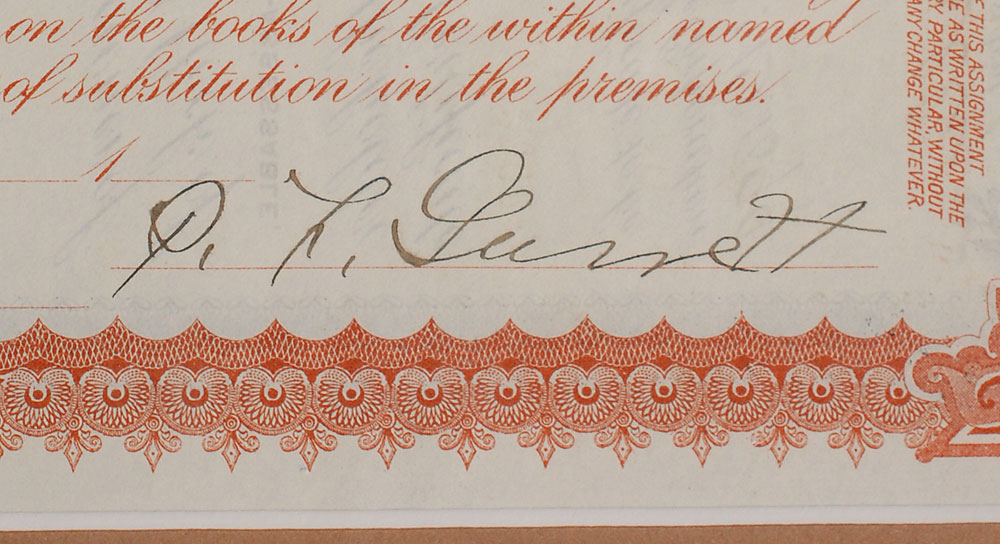 on the books of the within named
of substitution in the premises.
1
P. F. Garrett
E THIS ASSIGNMENT
E AS WRITTEN UPON THE
RY PARTICULAR, WITHOUT
ANY CHANGE WHATEVER.